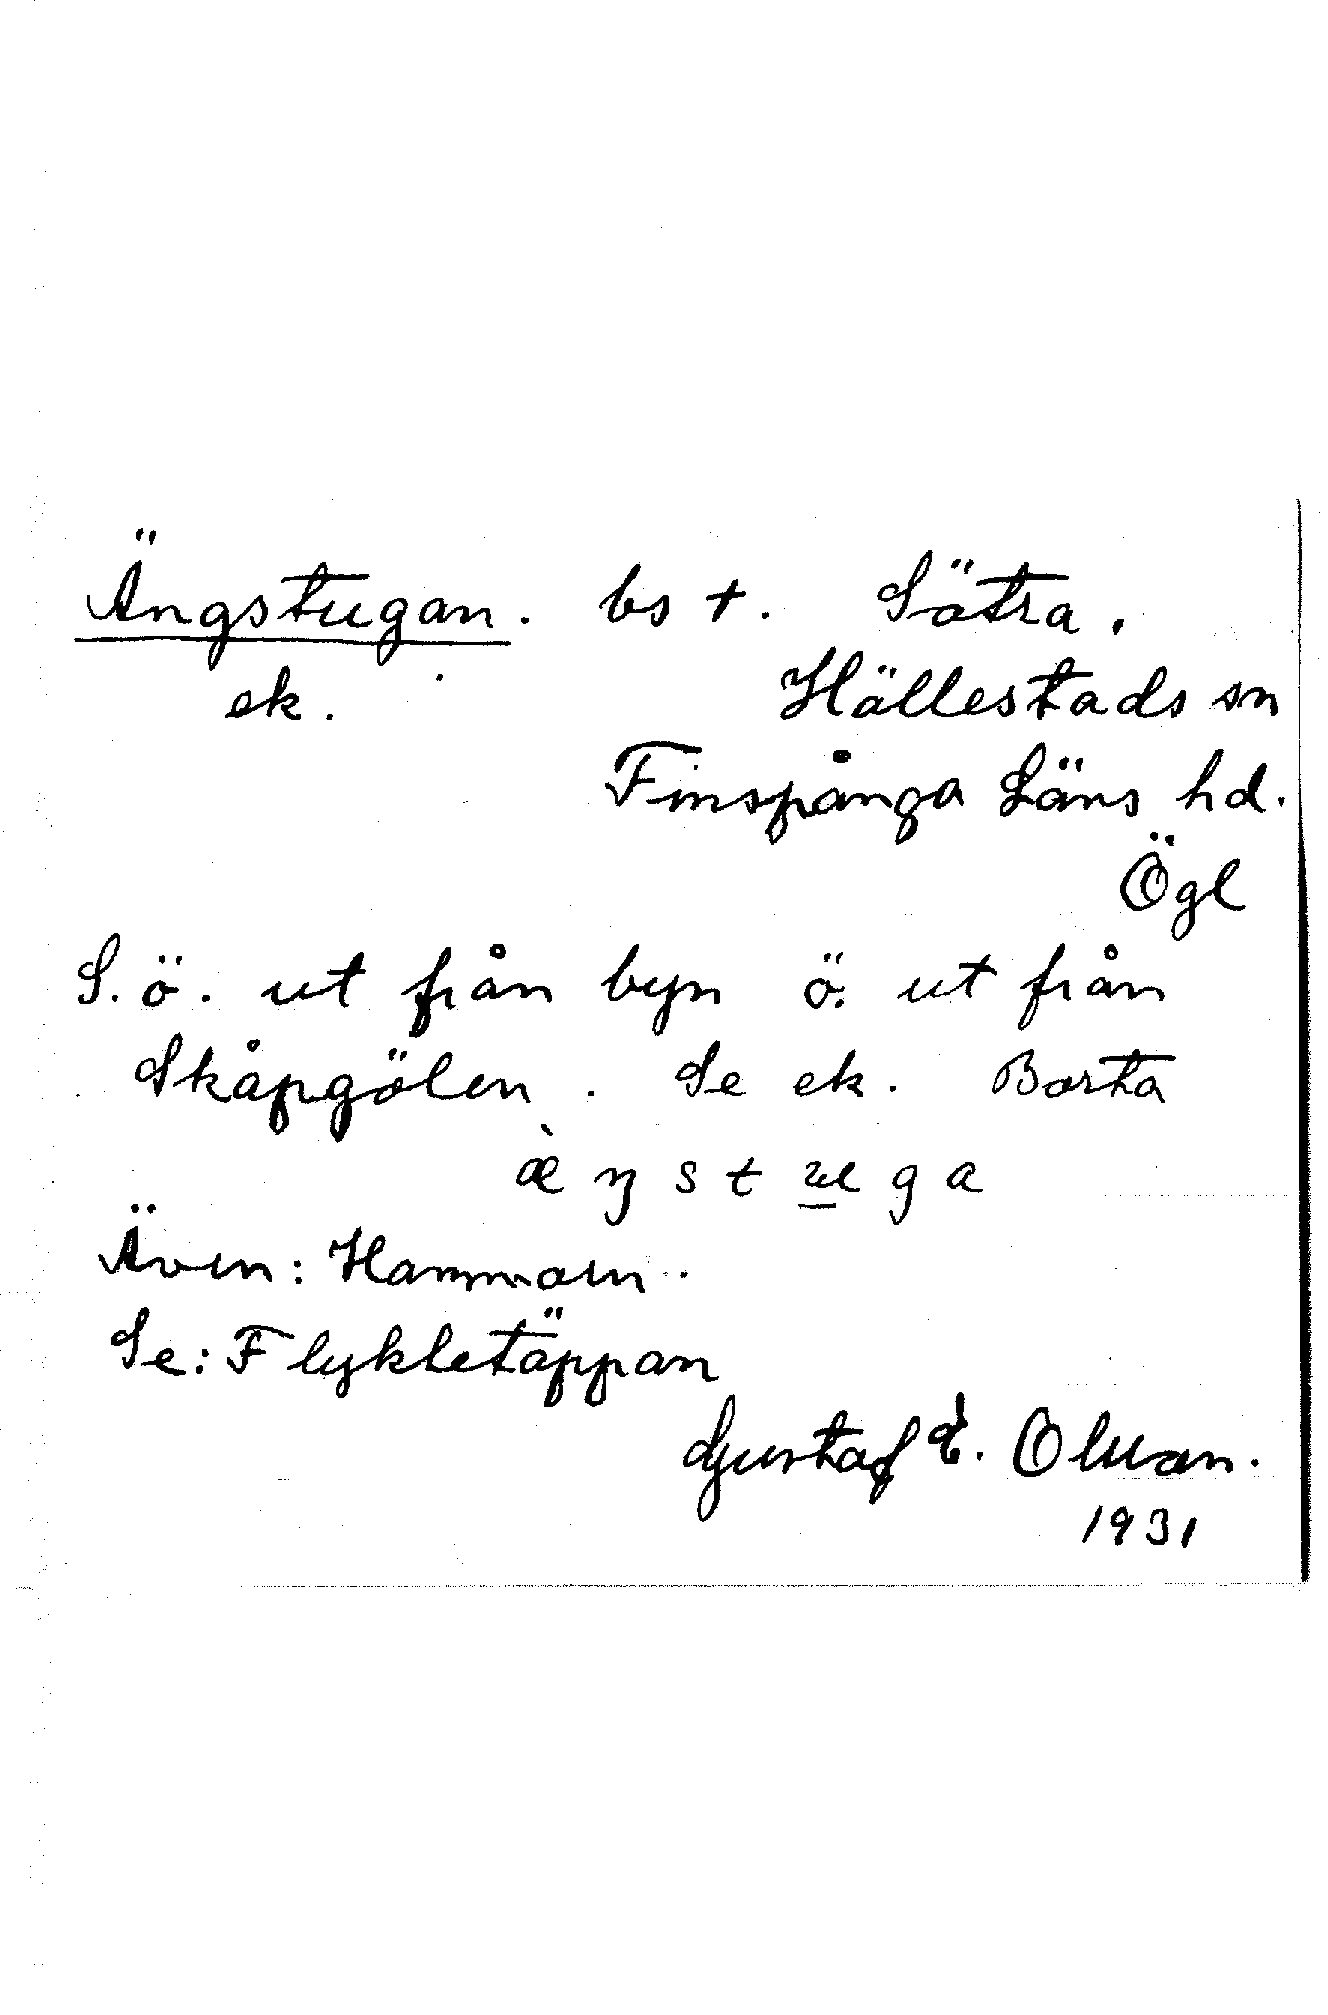 Ängstugan. bs †. Sätra.
ek. Hällestads sn
Finspånga Läns hd.
Ögl
S.ö. ut från byn ö. ut från
Skåpgölen. Se ek. Borta
æ̀ŋstu̲ga
Även: Hammarn.
Se: Flykletäppan
Gustaf E. Olsson.
1931